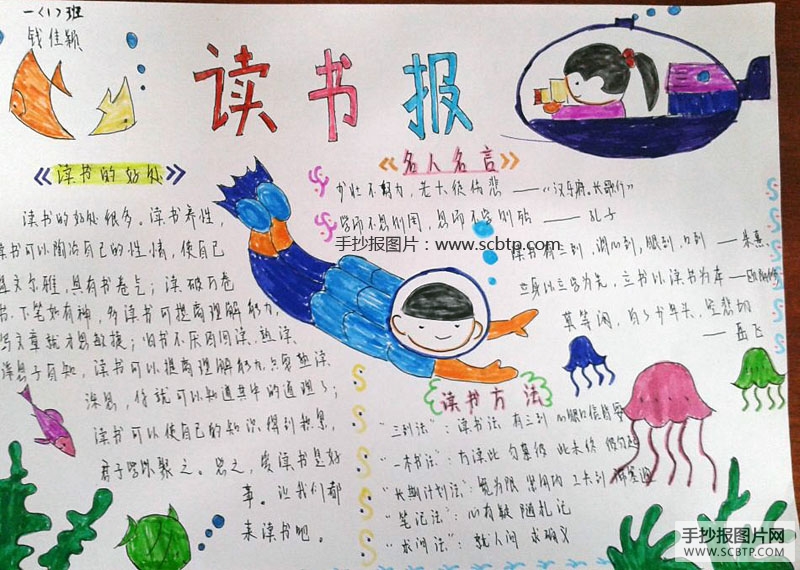 一（1）班
钱佳颖
读书报
《读书的好处》
读书的好处很多。读书养性，
读书可以陶冶自己的性情，使自己
温文尔雅，具有书卷气；读破万卷
书，下笔如有神，多读书可提高理解能力，
写文章就才思敏捷；旧书不厌百回读，熟读
深思子自知，读书可以提高理解能力，只要熟读
深思，你就可以知道其中的道理了；
读书可以使自己的知识得到积累，
君子学以聚之。总之，爱读书是好
事。让我们都
来读书吧。
《名人名言》
少壮不努力，老大徒伤悲——“汉乐府。长歌行”
学而不思则罔，思而不学则殆——孔子
手抄报图片：www.scbtp.com
读书有三到，谓心到，眼到，口到——朱熹
立身以立学为先，立书以读书为本——欧阳修
莫等闲，白了少年头，空悲切
——岳飞
读书方法
“三到法”：读书法 有三到 心眼口信皆要
“一本书法”：方读此 勿慕彼 此未终 彼勿起
“长期计划法”：宽为限 紧用功 工夫到 滞塞通
“笔记法”：心有疑 随札记
“求问法”：就人问 求确义
手抄报图片网
WWW.SCBTP.COM